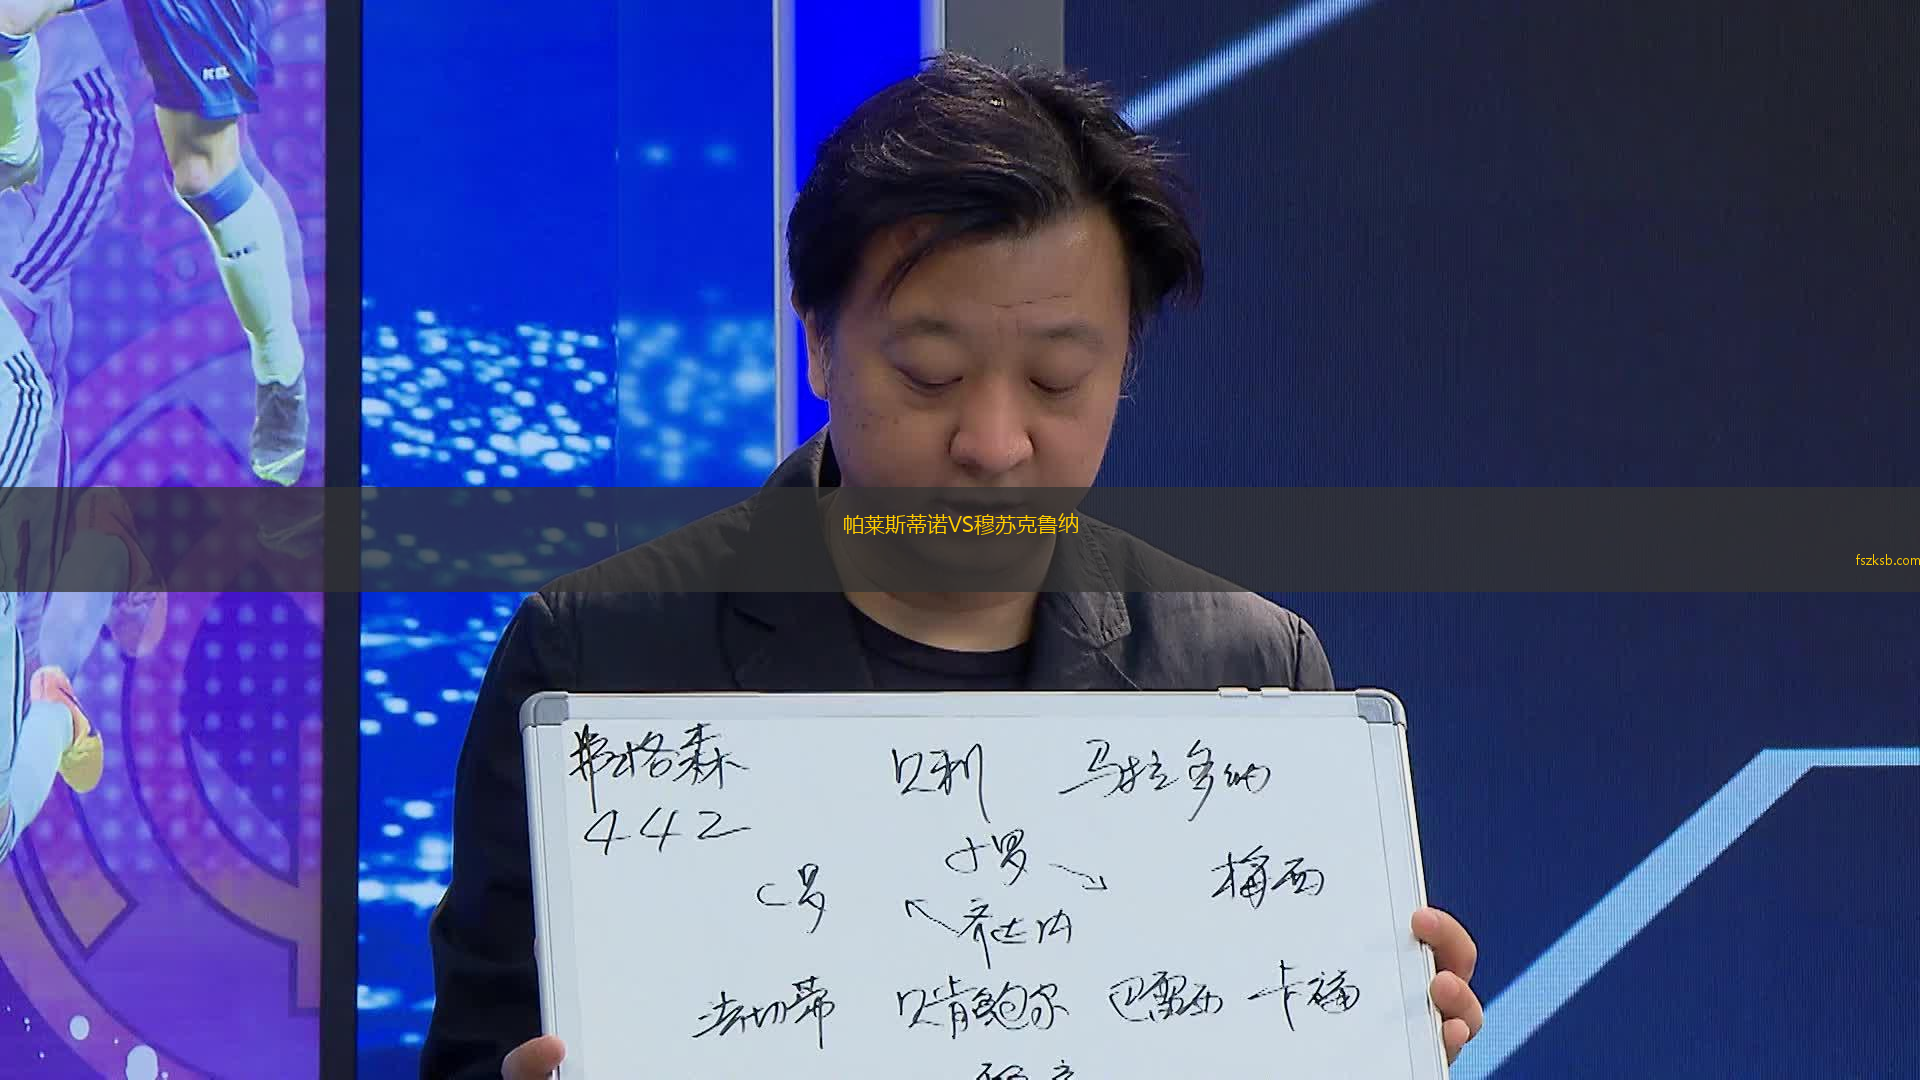 帕莱斯蒂诺VS穆苏克鲁纳
fszksb.com
弗格森 贝利 马拉多纳
442
小罗
C罗 梅西
齐达内
法切蒂 贝肯鲍尔 巴雷西 卡福